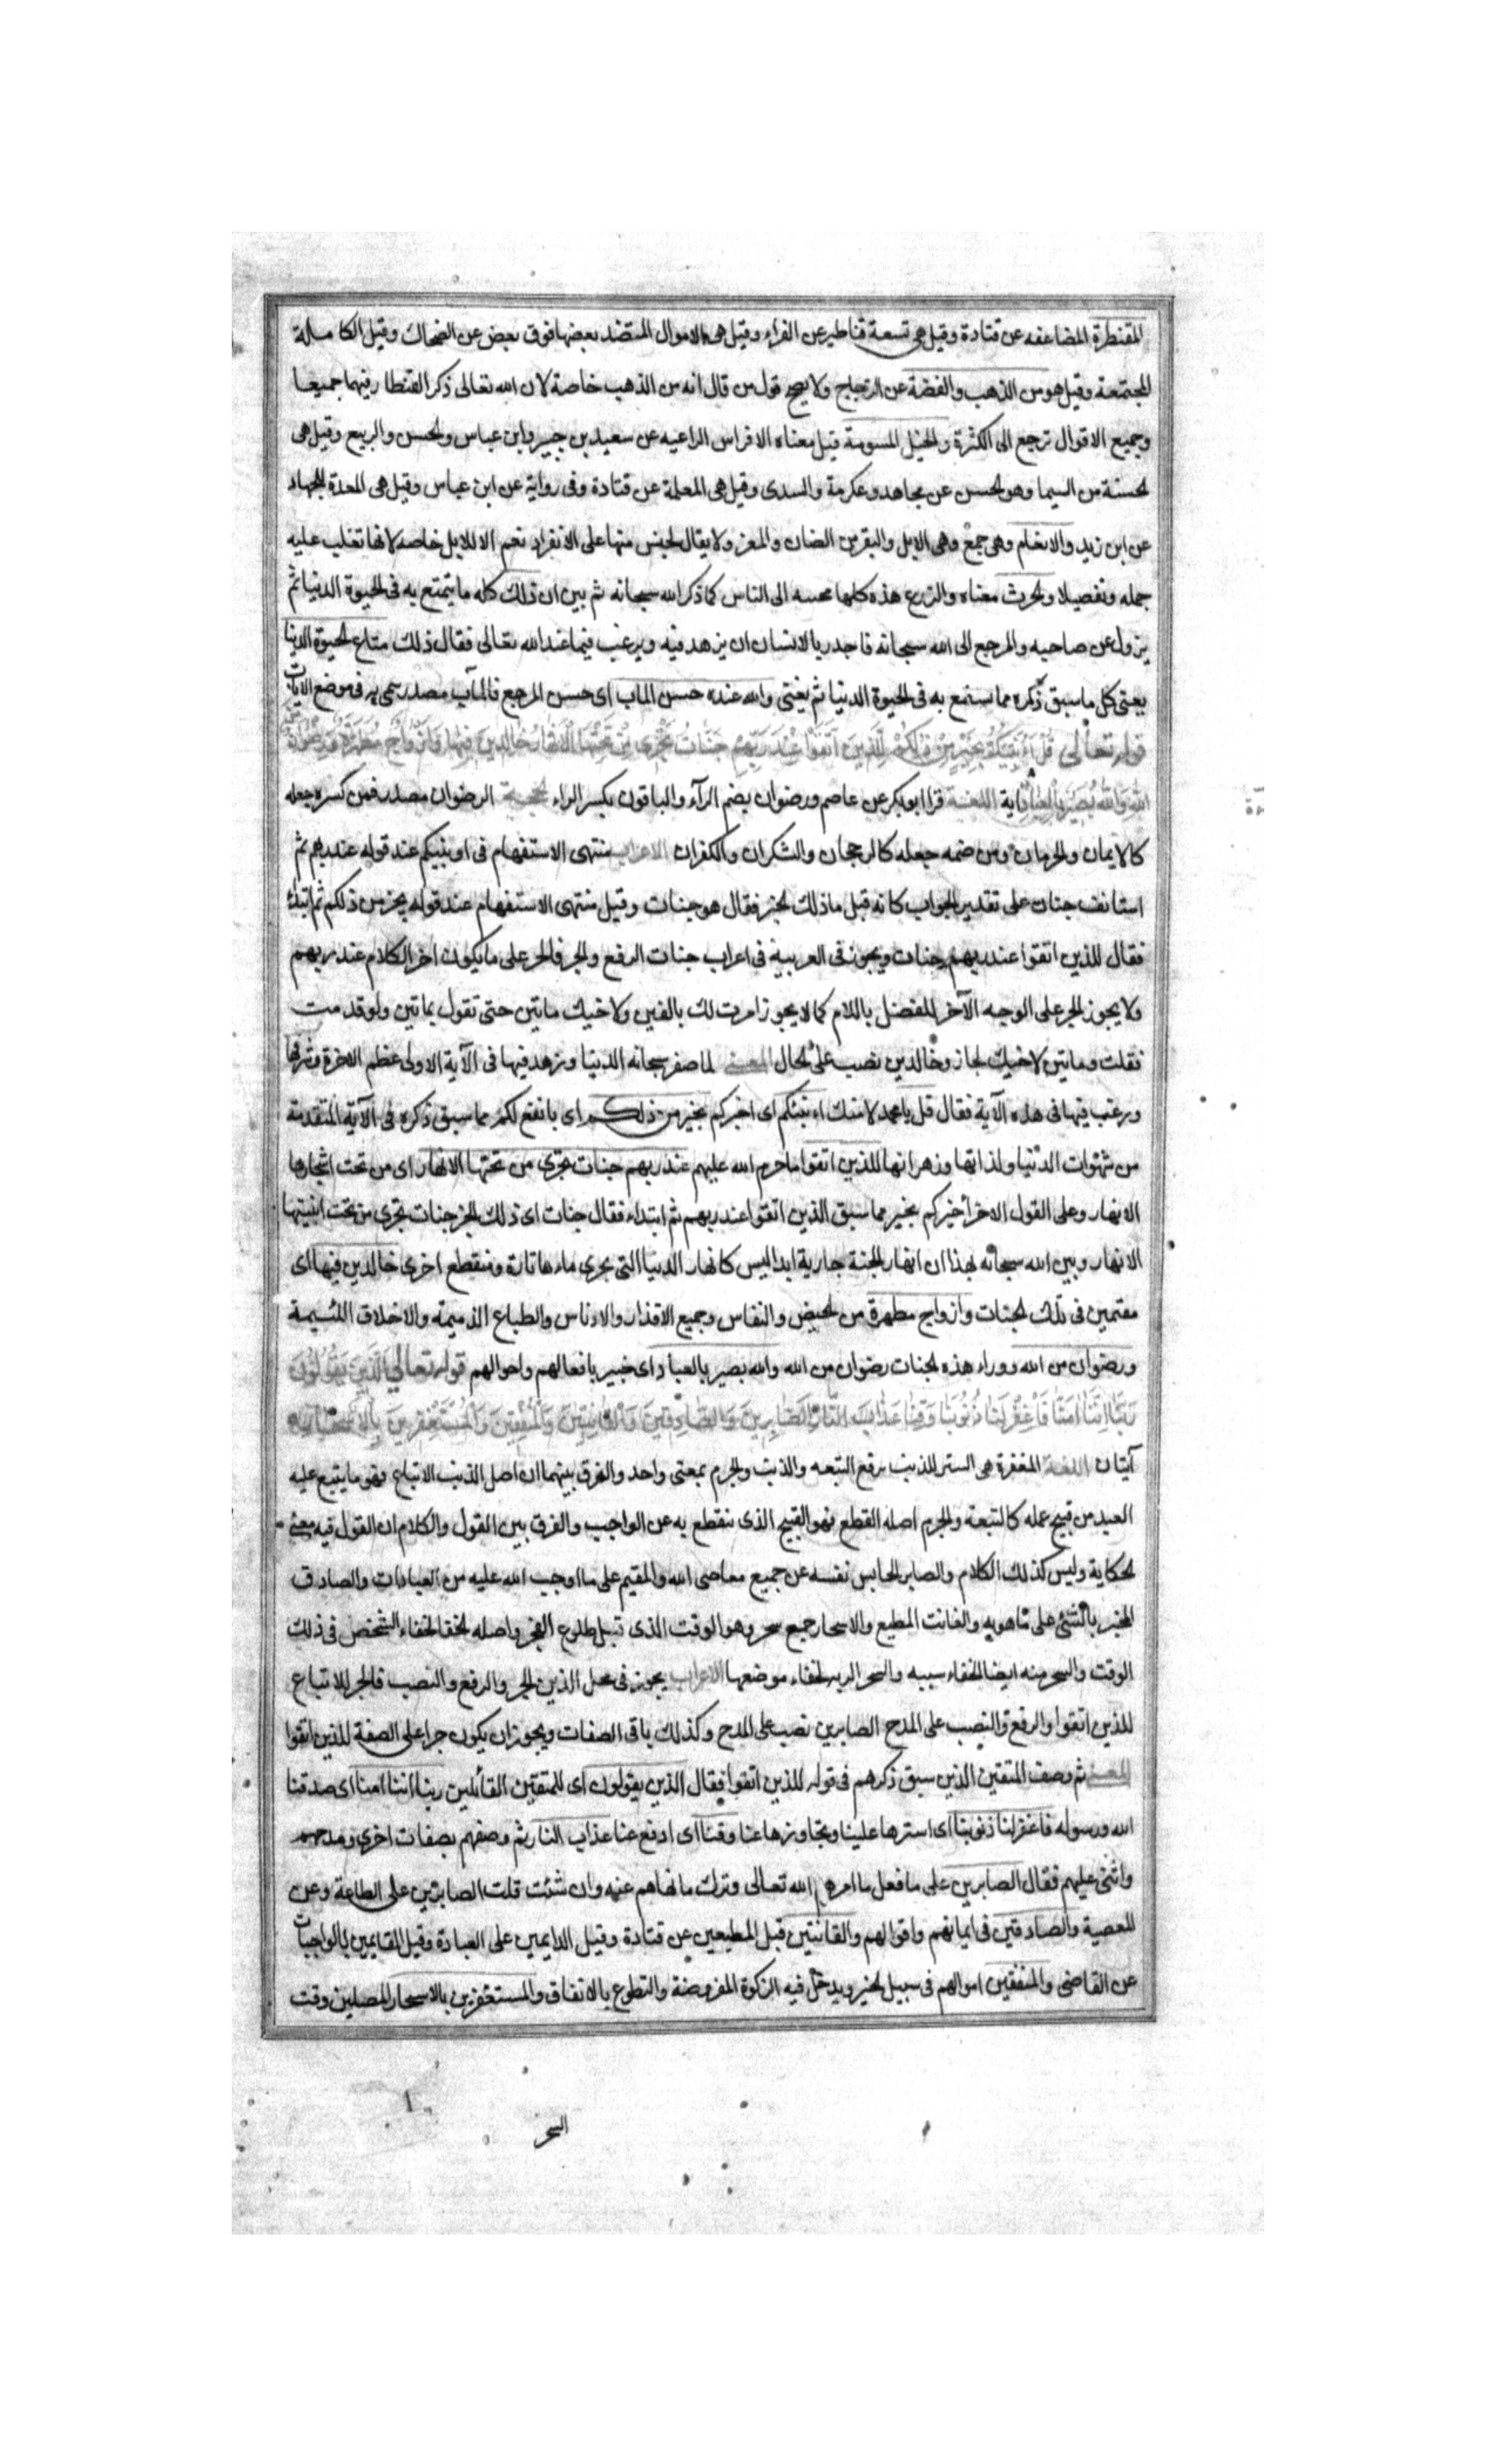 المقنطرة المضاعفه عن قتادة وقيل هى تسعة قناطير عن الفراء وقيل هى الاموال المنضد بعضها فوق بعض عن الضحاك وقيل الكاملة
المجتمعة وقيل هو من الذهب والفضة عن الزجاج ولا يصح قول من قال انه من الذهب خاصة لان الله تعالى ذكر القنطار فيهما جميعا
وجميع الاقوال ترجع الى الكثرة والخيل المسومة قيل معناه الافراس الراعيه عن سعيد بن جبير وابن عباس والحسن والربيع وقيل هى
الحسنة من السيما وهو الحسن عن مجاهد وعكرمة والسدى وقيل هى المعلمة عن قتادة وفى رواية عن ابن عباس وقيل هى المعدة للجهاد
عن ابن زيد والانعام وهى جمع وهى الابل والبقر من الضان والمعز ولا يقال لجنس منها على الانفراد نعم الا للابل خاصه لانها تغلب عليه
جمله وتفصيلا والحرث معناه والزرع هذه كلها محببه الى الناس كما ذكر الله سبحانه ثم بين ان ذلك كله ما يتمتع به فى الحيوة الدنيا ثم
يزول عن صاحبه والمرجع الى الله سبحانه فاجدر بالانسان ان يزهد فيه ويرغب فيما عند الله تعالى فقال ذلك متاع الحيوة الدنيا
يعنى كل ما سبق ذكره مما استمتع به فى الحيوة الدنيا ثم يفنى والله عنده حسن الماب اى حسن المرجع فالمآب مصدر سمى به فى موضع الاياب
قوله تعالى قُلْ اَؤُنَبِّئُكُمْ بِخَيْرٍ مِنْ ذٰلِكُمْ لِلَّذِينَ اتَّقَوْا عِنْدَ رَبِّهِمْ جَنَّاتٌ تَجْرِى مِنْ تَحْتِهَا الْاَنْهَارُ خَالِدِينَ فِيهَا وَاَزْوَاجٌ مُطَهَّرَةٌ وَرِضْوَانٌ مِنَ
اللهِ وَاللهُ بَصِيرٌ بِالْعِبَادِ اية اللغة قرا ابو بكر عن عاصم ورضوان بضم الرآء والباقون بكسر الراء الحجة الرضوان مصدر فمن كسره جعله
كالايمان والحرمان ومن ضمه جعله كالرجحان والشكران والكفران الاعراب منتهى الاستفهام فى اونبئكم عند قوله عند ربهم ثم
استانف جنات على تقدير الجواب كانه قيل ما ذلك الخير فقال هو جنات وقيل منتهى الاستفهام عند قوله بخير من ذلكم ثم ابتداء
فقال للذين اتقوا عند ربهم جنات ويجوز فى العربية فى اعراب جنات الرفع والجر فالجر على ما يكون اخر الكلام عند ربهم
ولا يجوز الجر على الوجه الآخر للفصل باللام كما لا يجوز امرت لك بالفين ولاخيك ماتين حتى تقول بماتين ولو قدمت
فقلت وماتين لاخيك لجاز وخالدين نصب على الحال المعنى لما صغر سبحانه الدنيا وزهد فيها فى الآية الاولى عظم الاخرة وشرفها
ورغب فيها فى هذه الآية فقال قل يا محمد لامتك اءنبئكم اى اخبركم بخير من ذلكم اى بانفع لكم مما سبق ذكره فى الآية المتقدمة
من شهوات الدنيا ولذاتها وزهراتها للذين اتقوا ما حرم الله عليهم عند ربهم جنات تجرى من تحتها الانهار اى من تحت اشجارها
الانهار وعلى القول الاخر أخبركم بخير مما سبق الذين اتقوا عند ربهم ثم ابتداء فقال جنات اى ذلك الخير جنات تجرى من تحت ابنيتها
الانهار وبين الله سبحانه بهذا ان انهار الجنة جارية ابدا ليس كانهار الدنيا التى يجرى ماءها تارة وينقطع اخرى خالدين فيها اى
مقيمين فى تلك الجنات وازواج مطهرة من الحيض والنفاس وجميع الاقذار والادناس والطباع الذميمة والاخلاق اللئيمة
ورضوان من الله ووراء هذه الجنات رضوان من الله والله بصير بالعباد اى خبير بافعالهم واحوالهم قوله تعالى الَّذِينَ يَقُولُونَ
رَبَّنَا اِنَّنَا اٰمَنَّا فَاغْفِرْ لَنَا ذُنُوبَنَا وَقِنَا عَذَابَ النَّارِ الصَّابِرِينَ وَالصَّادِقِينَ وَالْقَانِتِينَ وَالْمُنْفِقِينَ وَالْمُسْتَغْفِرِينَ بِالْاَسْحَارِ
آيتان اللغة المغفرة هى الستر للذنب برفع التبعه والذنب والجرم بمعنى واحد والفرق بينهما ان اصل الذنب الاتباع فهو ما يتبع عليه
العبد من قبيح عمله كالتبعة والجرم اصله القطع فهو القبيح الذى ينقطع به عن الواجب والفرق بين القول والكلام ان القول فيه معنى
الحكاية وليس كذلك الكلام والصابر الحابس نفسه عن جميع معاصى الله والمقيم على ما اوجب الله عليه من العبادات والصادق
المخبر بالشئ على ما هو به والقانت المطيع والاسحار جميع سحر وهو الوقت الذى قبل طلوع الفجر واصله الخفا لخفاء الشخص فى ذلك
الوقت والسحر منه ايضا لخفاء سببه والسحر الريه لخفاء موضعها الاعراب يجوز فى محل الذين الجر والرفع والنصب فالجر للاتباع
للذين اتقوا والرفع والنصب على المدح الصابرين نصب على المدح وكذلك باقى الصفات ويجوز ان يكون جرا على الصفة للذين اتقوا
المعنى ثم وصف المتقين الذين سبق ذكرهم فى قوله للذين اتقوا فقال الذين يقولون اى المتقين القائلين ربنا اننا امنا اى صدقنا
الله ورسوله فاغفر لنا ذنوبنا اى استرها علينا وتجاوزها عنا وقنا اى ادفع عنا عذاب النار ثم وصفهم بصفات اخرى ومدحهم
واثنى عليهم فقال الصابرين على ما فعل ما امرهم الله تعالى وترك ما نهاهم عنه وان شئت قلت الصابرين على الطاعة وعن
المعصية والصادقين فى ايمانهم واقوالهم والقانتين قيل المطيعين عن قتادة وقيل الدايمين على العبادة وقيل القايمين بالواجبات
عن القاضى والمنفقين اموالهم فى سبيل الخير ويدخل فيه الزكوة المفروضة والتطوع بالانفاق والمستغفرين بالاسحار المصلين وقت
السحر